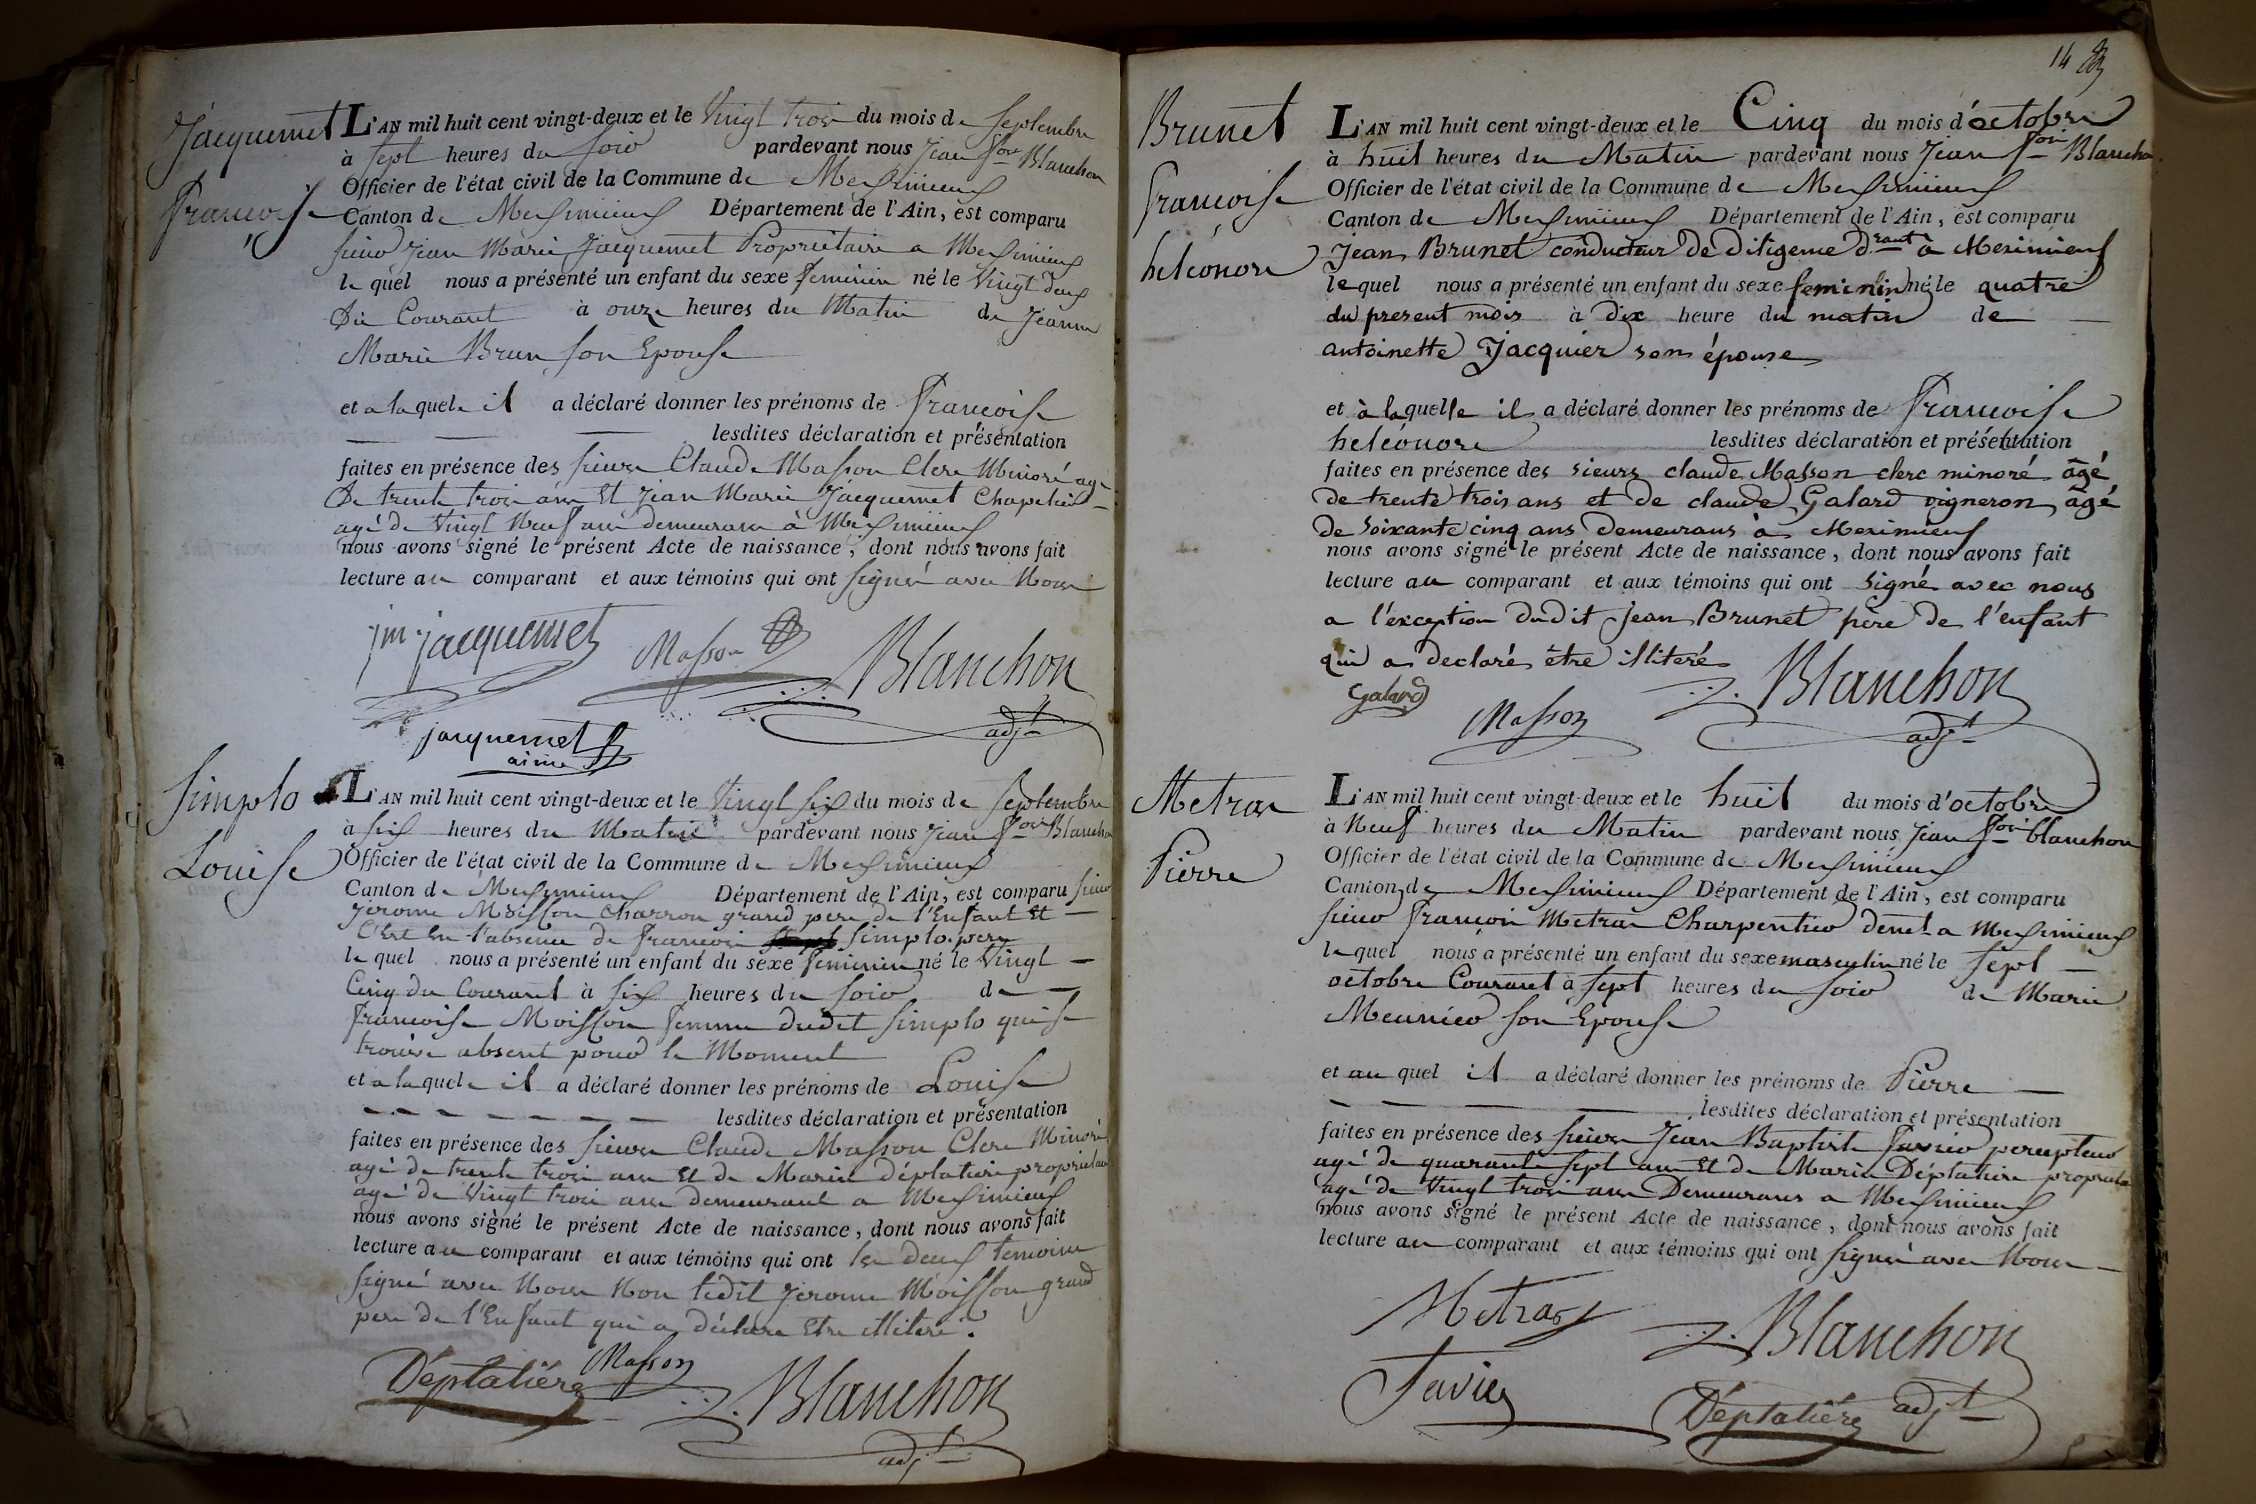 Jacquemet
Francoise
L'AN mil huit cent vingt-deux et le Vingt trois du mois de Septembre
à Sept heures du Soir pardevant nous Jean fois Blanchon
Officier de l'état civil de la Commune de Meximieux
Canton de Meximieux Département de l'Ain, est comparu
sieur Jean Marie Jacquemet Propriétaire a Meximieux
le quel nous a présenté un enfant du sexe feminin né le Vingt deux
Du Courant à onze heures du Matin de Jeanne
Marie Brun son Epouse
et a la quele il a déclaré donner les prénoms de Francoise
lesdites déclaration et présentation
faites en présence des sieurs Claude Masson Clerc Minoré agé
De trente trois ans Et Jean Marie Jacquemet Chapelier
agé de Vingt Neuf ans demeurans à Meximieux
nous avons signé le présent Acte de naissance, dont nous avons fait
lecture au comparant et aux témoins qui ont Signé avec Nous
jm jacquemet Masson Blanchon
adjt
jacquemet
ainé
Simplo
Louise
L'AN mil huit cent vingt-deux et le Vingt six du mois de Septembre
à six heures du Matin pardevant nous Jean fois Blanchon
Officier de l'état civil de la Commune de Meximieux
Canton de Meximieux Département de l'Ain, est comparu sieur
Jerome Moisson Charron grand pere de l'Enfant Et
C'est En l'absence de francois Simplo pere
le quel nous a présenté un enfant du sexe feminin né le Vingt
Cinq du Courant à six heures du soir de
francoise Moisson femme dudit Simplo qui se
trouve absent pour le Moment
et a la quele il a déclaré donner les prénoms de Louise
lesdites déclaration et présentation
faites en présence des sieurs Claude Masson Clerc Minoré
agé de trente trois ans Et de Marie Déplatière propriétaire
agé de Vingt trois ans demeurant a Meximieux
nous avons signé le présent Acte de naissance, dont nous avons fait
lecture au comparant et aux témoins qui ont les deux temoins
signé avec Nous Non ledit Jerome Moisson grand
pere de l'Enfant qui a déclaré Etre illiteré.
Déplatière Masson Blanchon
adjt
14
Brunet
francoise
heléonore
L'AN mil huit cent vingt-deux et le Cinq du mois d'octobre
à huit heures du Matin pardevant nous Jean fois Blanchon
Officier de l'état civil de la Commune de Meximieux
Canton de Meximieux Département de l'Ain, est comparu
Jean Brunet conducteur de diligence d.rant a Meximieux
le quel nous a présenté un enfant du sexe feminin né le quatre
du present mois à dix heure du matin de
antoinette Jacquier son épouse
et à laquelle il a déclaré donner les prénoms de Francoise
heléonore lesdites déclaration et présentation
faites en présence des sieurs claude Masson clerc minoré âgé
de trente trois ans et de claude Galard vigneron âgé
de soixante cinq ans demeurans à Meximieux
nous avons signé le présent Acte de naissance, dont nous avons fait
lecture au comparant et aux témoins qui ont signé avec nous
a l'éxception dudit Jean Brunet père de l'enfant
qui a declaré être illiteré
Galard Masson Blanchon
adjt
Metras
Pierre
L'AN mil huit cent vingt-deux et le huit du mois d'octobre
à Neuf heures du Matin pardevant nous Jean fois blanchon
Officier de l'état civil de la Commune de Meximieux
Canton de Meximieux Département de l'Ain, est comparu
sieur François Metras Charpentier demt a Meximieux
le quel nous a présenté un enfant du sexe masculin né le Sept
octobre Courant à sept heures du soir de Marie
Meunier son Epouse
et au quel il a déclaré donner les prénoms de Pierre
lesdites déclaration et présentation
faites en présence des sieurs Jean Baptiste Favier percepteur
agé de quarante sept ans Et de Marie Déplatière propriétaire
agé de Vingt trois ans Demeurans a Meximieux
nous avons signé le présent Acte de naissance, dont nous avons fait
lecture au comparant et aux témoins qui ont signé avec Nous
Metras Blanchon
Favier Déplatière adjt